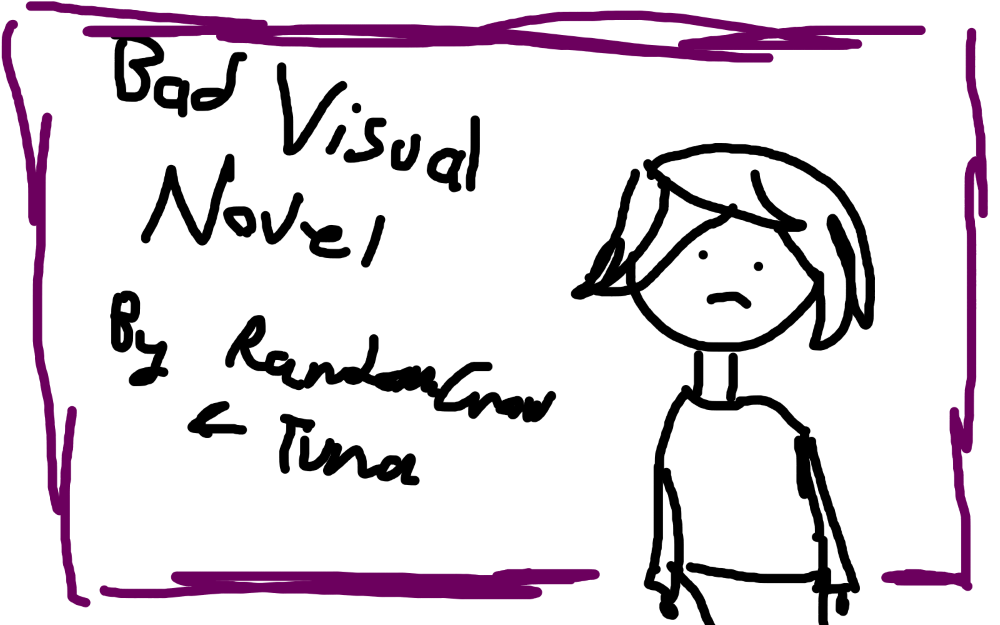 Bad Visual
Novel
By RandomCrow
← Tuna